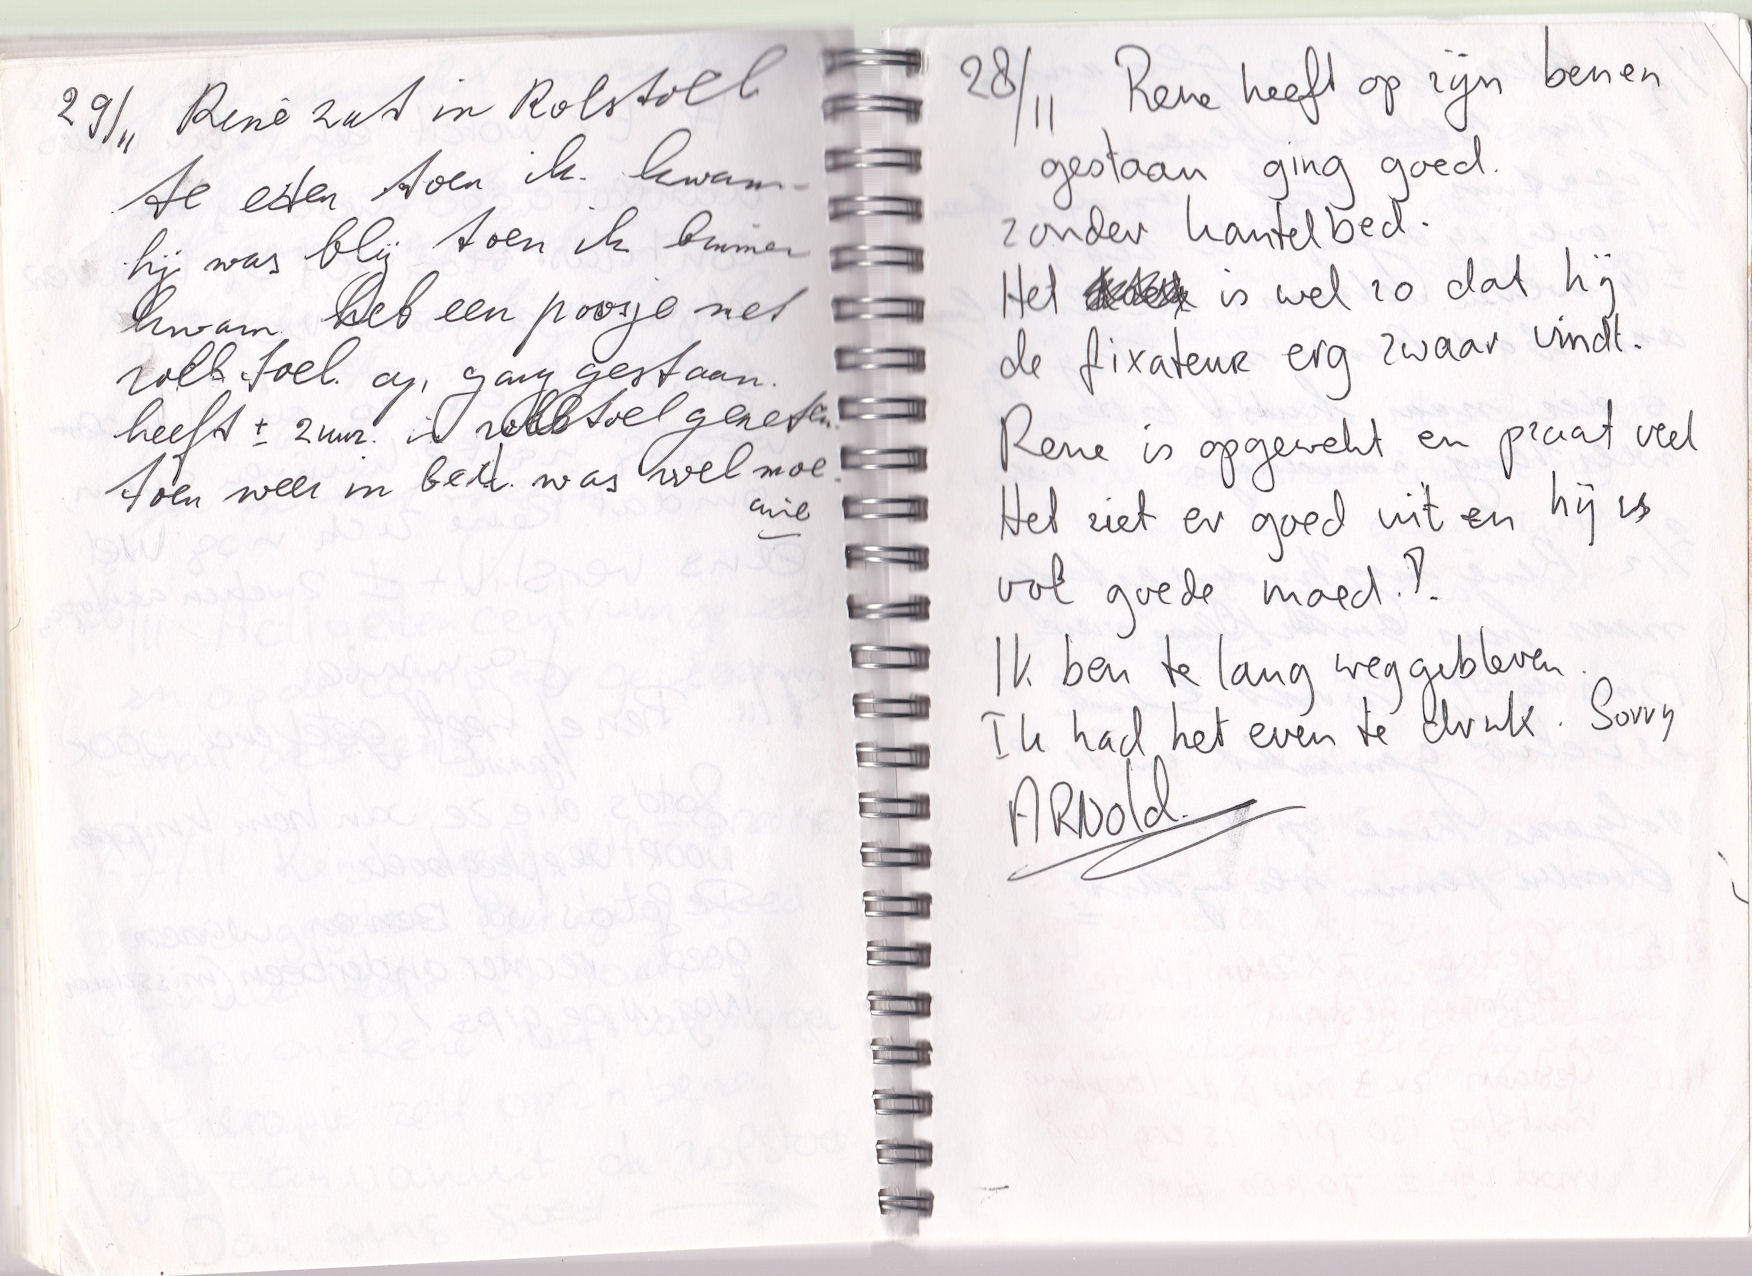 29/11 René zat in Rolstoel
te eten toen ik kwam
hij was blij toen ik binnen
kwam. Heb een poosje met
rolstoel op gang gestaan.
heeft ± 2 uur. in rolstoel gezeten.
toen weer in bed. was wel moe.
28/11 Rene heeft op zijn benen
gestaan ging goed.
zonder kantelbed.
Het is wel zo dat hij
de fixateur erg zwaar vindt.
Rene is opgewekt en praat veel
Het ziet er goed uit en hij is
vol goede moed!.
Ik ben te lang weggebleven.
Ik had het even te druk. Sorry
ARNold.